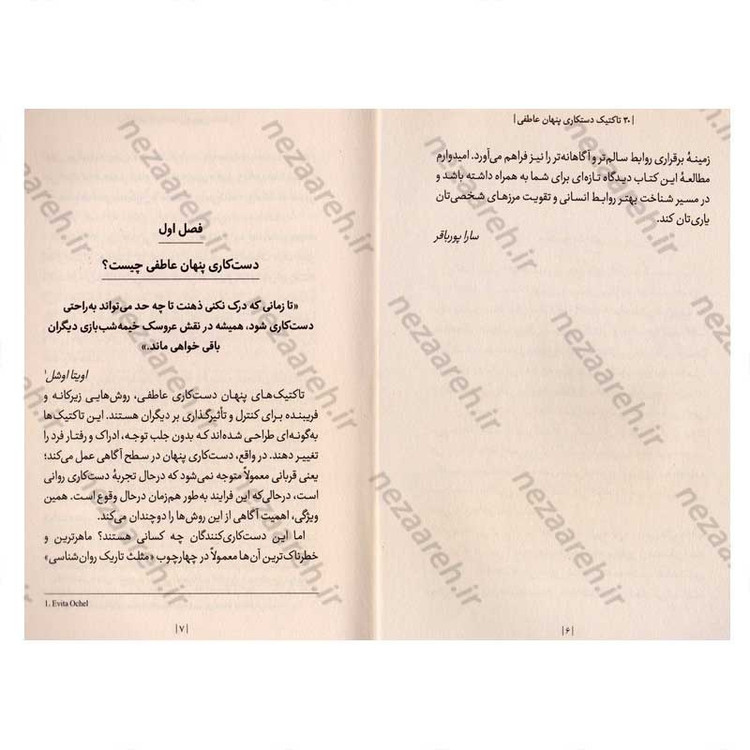 | ۳۰ تاکتیک دستکاری پنهان عاطفی |
زمینهٔ برقراری روابط سالم‌تر و آگاهانه‌تر را نیز فراهم می‌آورد. امیدوارم
مطالعهٔ این کتاب دیدگاه تازه‌ای برای شما به همراه داشته باشد و
در مسیر شناخت بهتر روابط انسانی و تقویت مرزهای شخصی‌تان
یاری‌تان کند.
سارا پورباقر
|۶|
فصل اول
دست‌کاری پنهان عاطفی چیست؟
«تا زمانی که درک نکنی ذهنت تا چه حد می‌تواند به‌راحتی
دست‌کاری شود، همیشه در نقش عروسک خیمه‌شب‌بازی دیگران
باقی خواهی ماند.»
اویتا اوشل۱
تاکتیک‌های پنهان دست‌کاری عاطفی، روش‌هایی زیرکانه و
فریبنده برای کنترل و تأثیرگذاری بر دیگران هستند. این تاکتیک‌ها
به‌گونه‌ای طراحی شده‌اند که بدون جلب توجه، ادراک و رفتار فرد را
تغییر دهند. در واقع، دست‌کاری پنهان در سطح آگاهی عمل می‌کند؛
یعنی قربانی معمولاً متوجه نمی‌شود که درحال تجربهٔ دست‌کاری روانی
است، درحالی‌که این فرایند به‌طور هم‌زمان درحال وقوع است. همین
ویژگی، اهمیت آگاهی از این روش‌ها را دوچندان می‌کند.
اما این دست‌کاری‌کنندگان چه کسانی هستند؟ ماهرترین و
خطرناک‌ترین آن‌ها معمولاً در چهارچوب «مثلث تاریک روان‌شناسی»
1. Evita Ochel
|۷|
nezaareh.ir
nezaareh.ir
nezaareh.ir
nezaareh.ir
nezaareh.ir
nezaareh.ir
nezaareh.ir
nezaareh.ir